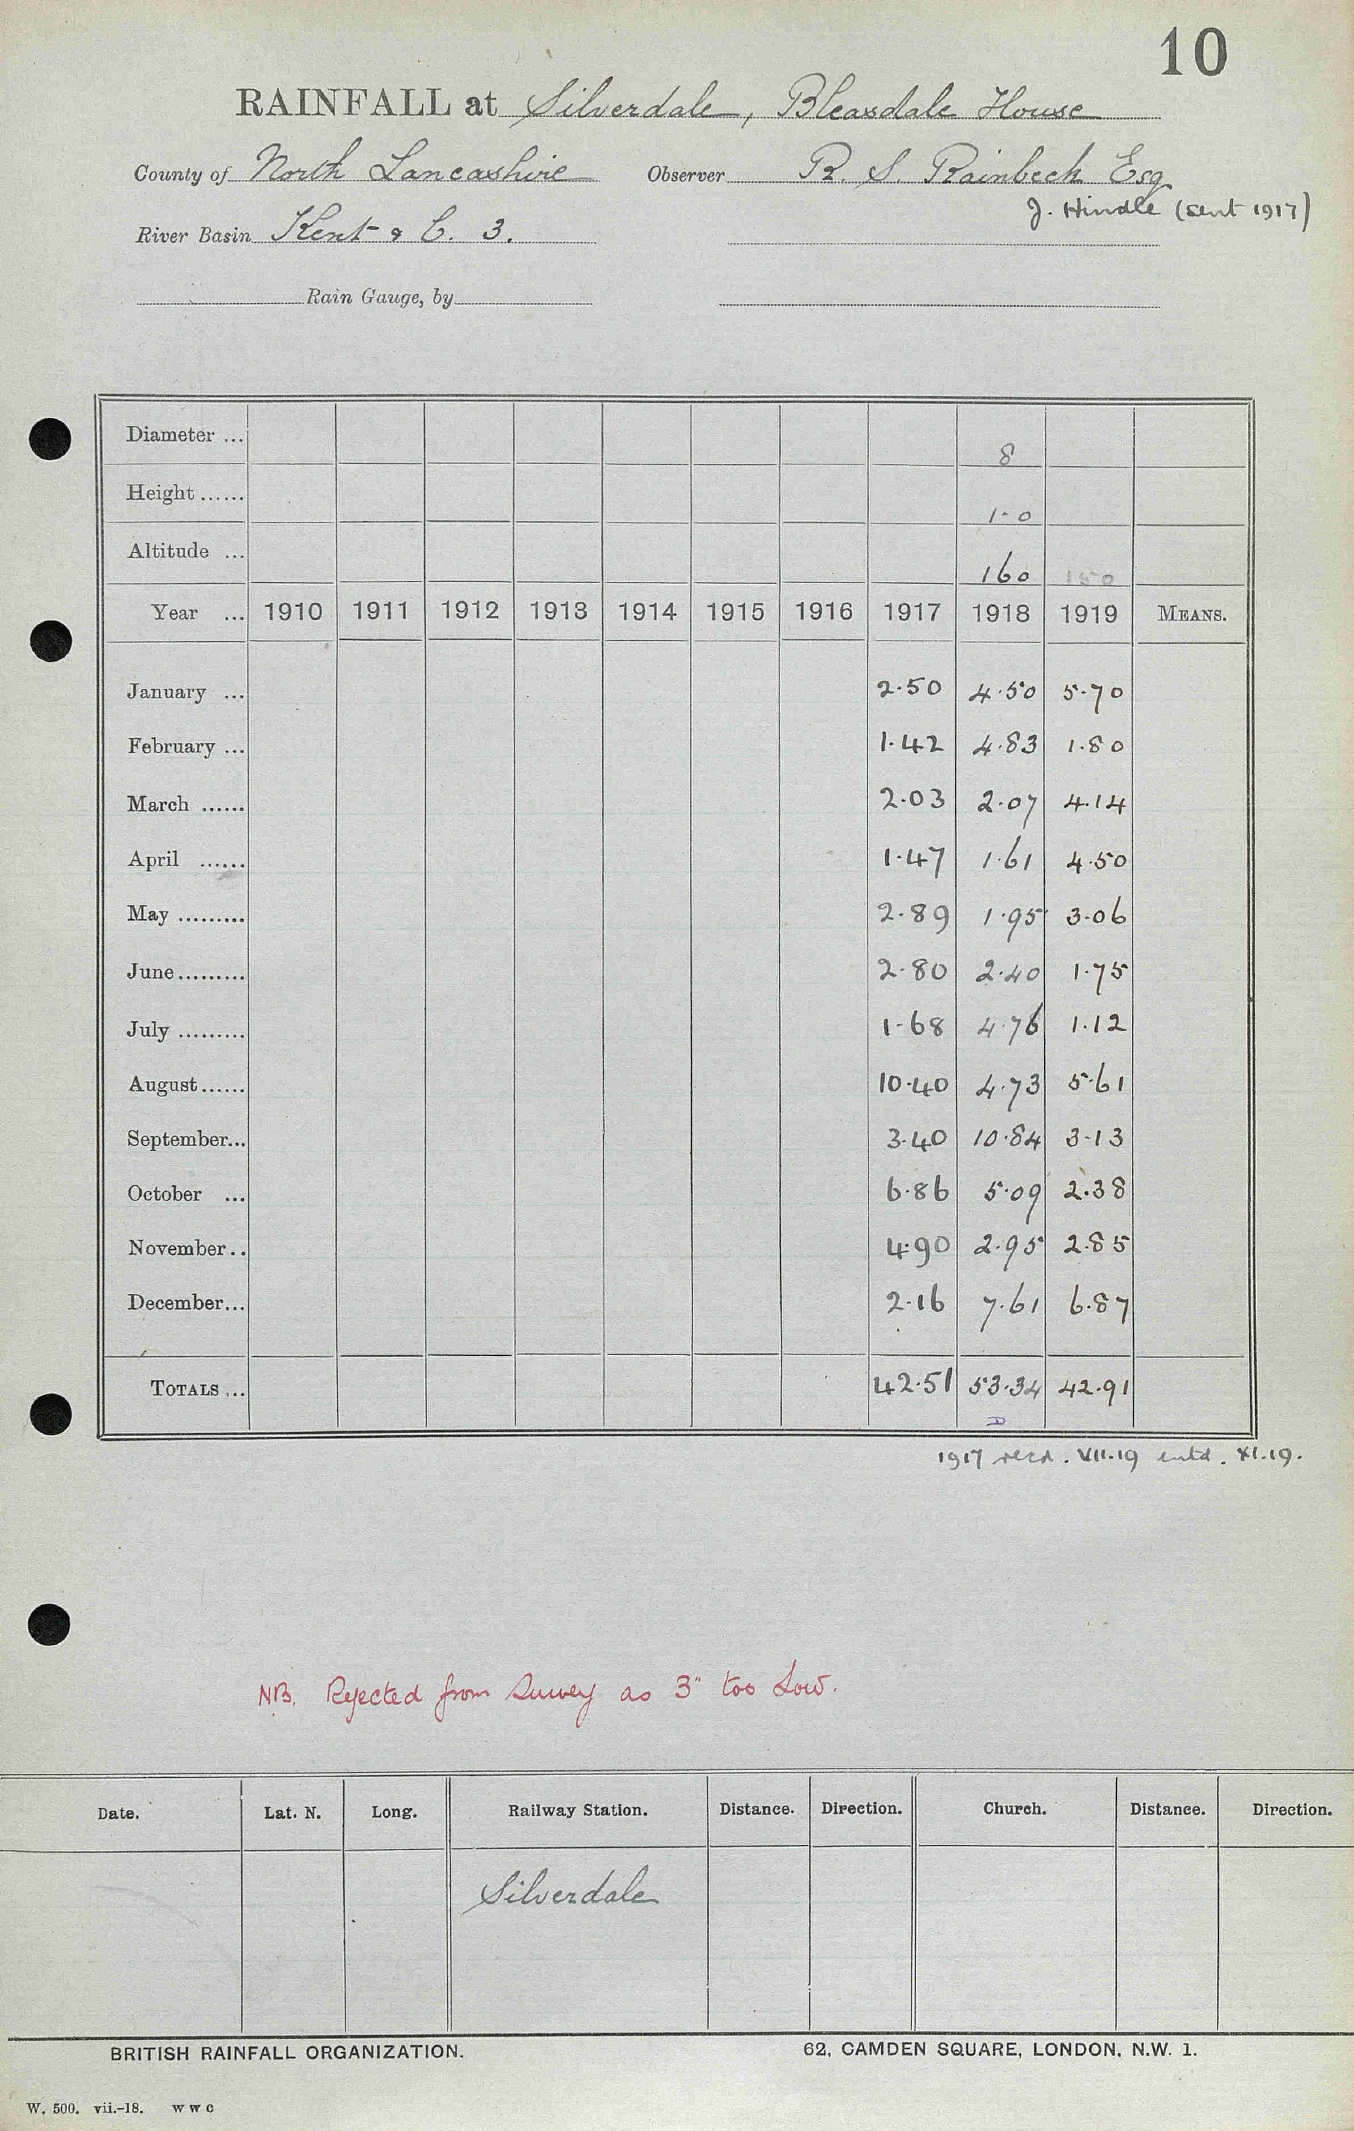 10
RAINFALL at Silverdale, Bleasdale House
County of North Lancashire Observer R. S. Rainbeck Esq
J. Hindle (sent 1917)
River Basin Kent & C. 3.
Rain Gauge, by
Diameter ... 8
Height ...... 1-0
Altitude ... 160 150
Year ... 1910 1911 1912 1913 1914 1915 1916 1917 1918 1919 MEANS.
January ... 2.50 4.50 5.70
February ... 1.42 4.83 1.80
March ...... 2.03 2.07 4.14
April ...... 1.47 1.61 4.50
May ......... 2.89 1.95 3.06
June......... 2.80 2.40 1.75
July ......... 1.68 4.76 1.12
August...... 10.40 4.73 5.61
September... 3.40 10.84 3.13
October ... 6.86 5.09 2.38
November.. 4.90 2.95 2.85
December... 2.16 7.61 6.87
TOTALS ... 42.51 53.34 42.91
D
1917 recd. VII.19 entd. XI.19.
NB. Rejected from Survey as 3" too low.
Date. Lat. N. Long. Railway Station. Distance. Direction. Church. Distance. Direction.
Silverdale
BRITISH RAINFALL ORGANIZATION. 62, CAMDEN SQUARE, LONDON, N.W. 1.
W. 500. vii.-18. W W C